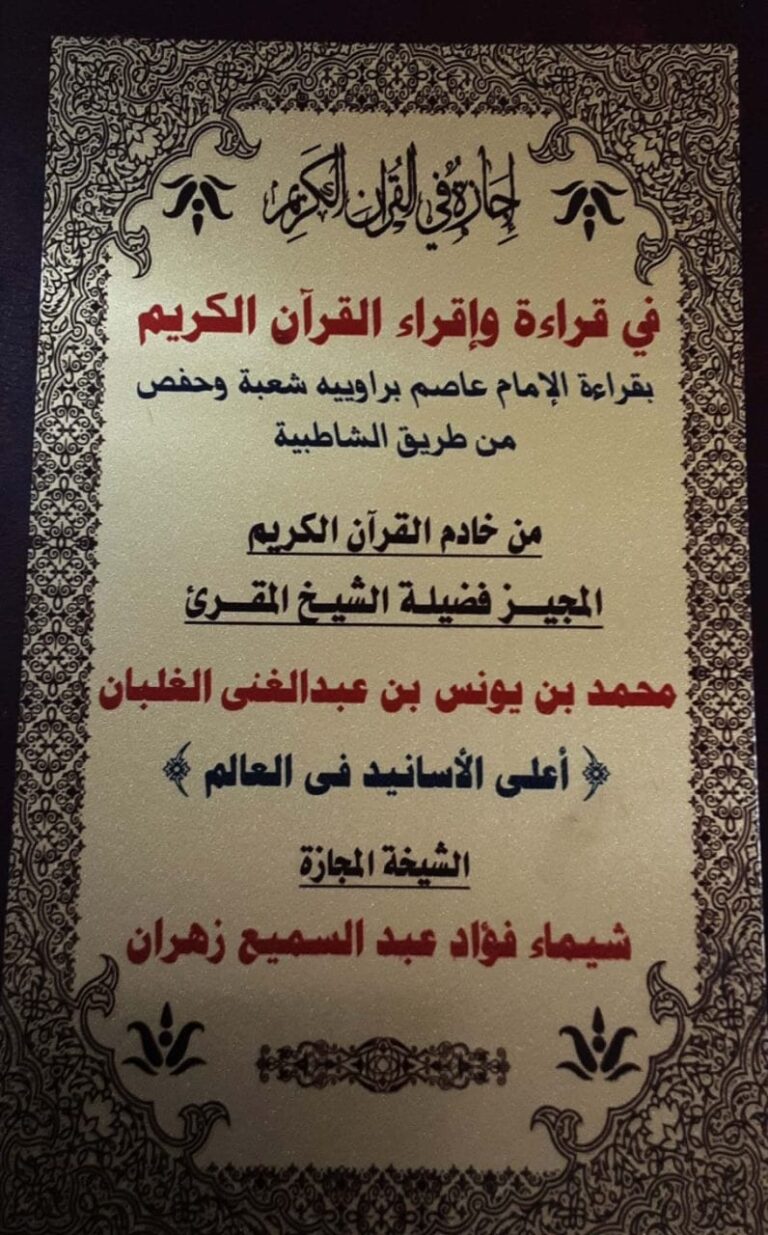 إِجَازَةٌ فِي القُرآنِ الكَرِيمِ
في قراءة وإقراء القرآن الكريم
بقراءة الإمام عاصم براوييه شعبة وحفص
من طريق الشاطبية
من خادم القرآن الكريم
المجيـــز فضيلـة الشيـخ المقـــرئ
محمد بن يونس بن عبدالغنى الغلبان
﴿ أعلى الأسانيد فى العالم ﴾
الشيخة المجازة
شيماء فؤاد عبد السميع زهران